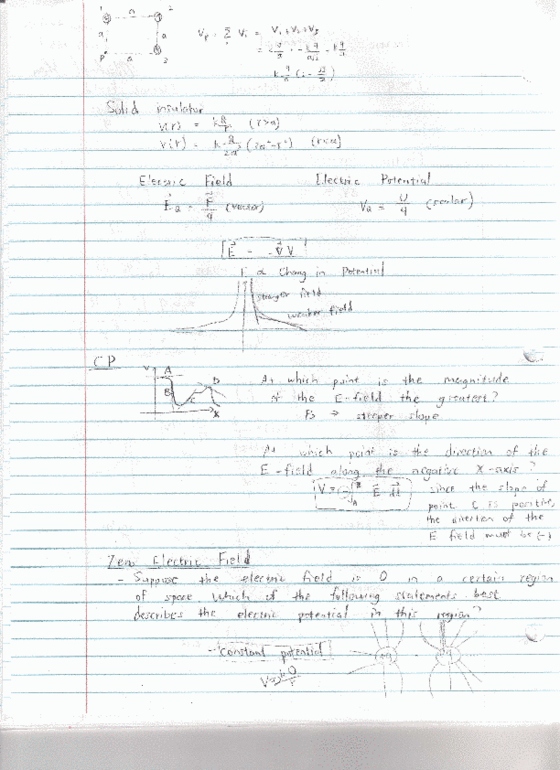 1 a 2
a a
P a 3
Vp = Σ Vi = V1 + V2 + V3
= kq/a - kq/a√2 + kq/a
Solid insulator
V(r) = kQ/r (r>a)
V(r) = kQ/2a³ (3a²-r²) (r<a)
Electric Field Electric Potential
E⃗a = F⃗/q (vector) Va = U/q (scalar)
E⃗ = -∇⃗V
E ∝ Chang in Potential
stronger field
weaker field
CP
V A B C D X
At which point is the magnitude
of the E-field the greatest?
B → steeper slope
At which point is the direction of the
E-field along the negative X-axis?
V = -∫ E⃗ · dl⃗
since the slope of
point C is positive,
the direction of the
E field must be (-)
Zero Electric Field
- Suppose the electric field is 0 in a certain region
of space. Which of the following statements best
describes the electric potential in this region?
- constant potential
+q